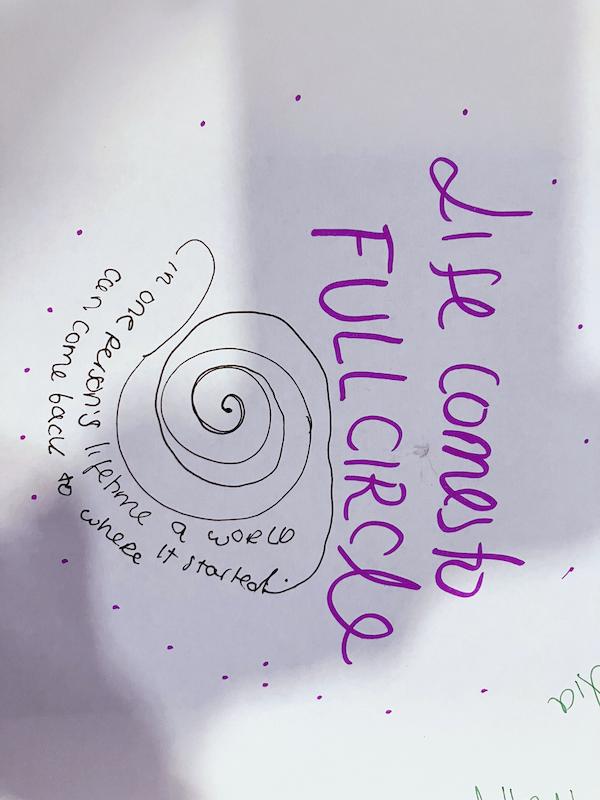 Life comes to
FULL CIRCLE
in one person's lifetime a WORLD
can come back to where it started.